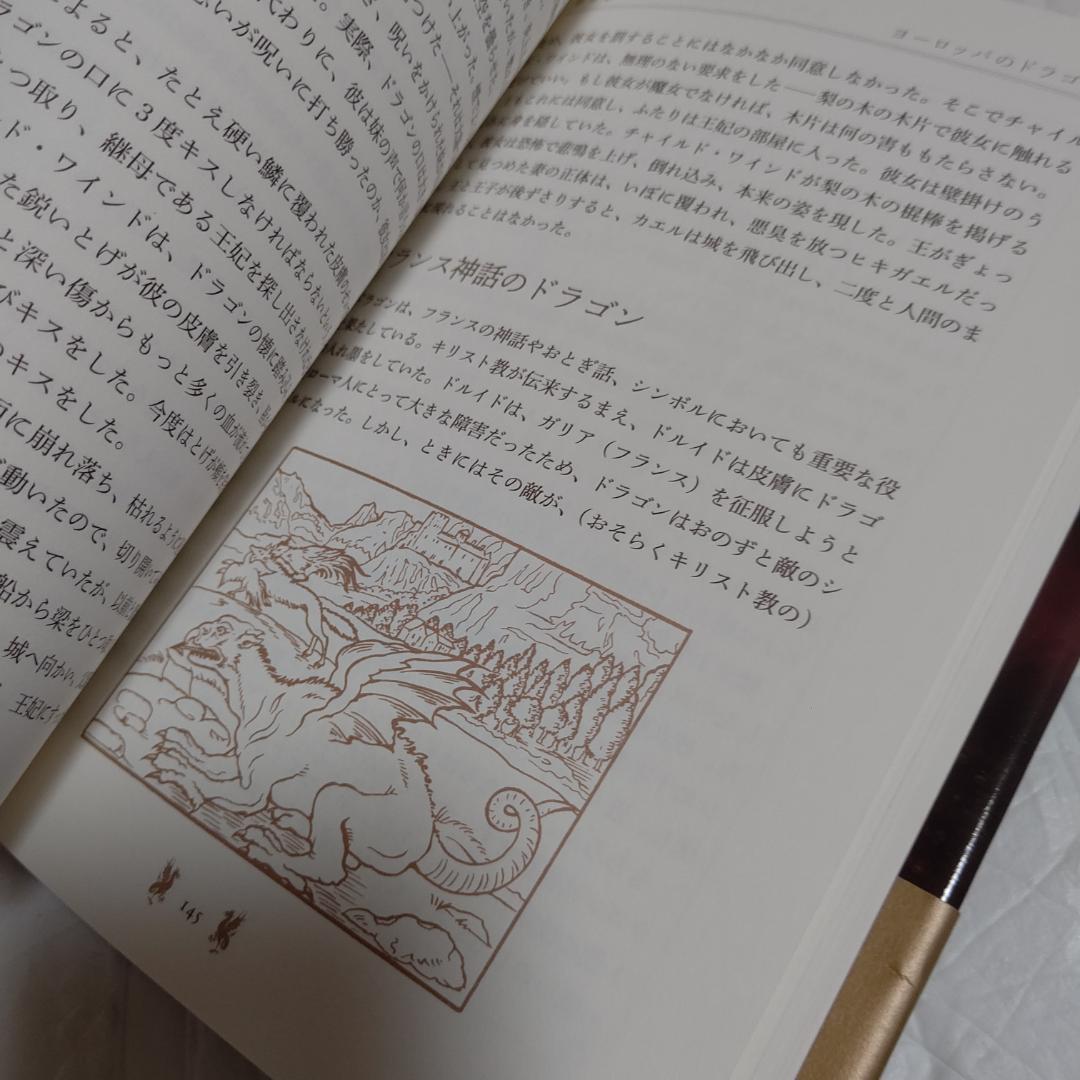 よると、たとえ硬い鱗に覆われた皮膚の
ラゴンの口に3度キスしなければならない
つ取り、継母である王妃を探し出さ
ルド・ワインドは、ドラゴンの懐に
た鋭いとげが彼の皮膚を引き裂き、
と深い傷からもっと多くの血が
びキスをした。今度はとげが
のキスをした。
に崩れ落ち、枯れるように
動いたので、切り開
震えていたが、
船から梁をひとつ
城へ向かい、
王妃に
ヨーロッパのドラゴ
彼女を罰することにはなかなか同意しなかった。そこでチャイル
インドは、無理のない要求をした——梨の木の木片で彼女に触れる
いい。もし彼女が魔女でなければ、木片は何の害ももたらさない。
これには同意し、ふたりは王妃の部屋に入った。彼女は壁掛けのう
身を隠していた。チャイルド・ワインドが梨の木の棍棒を掲げる
女は恐怖で悲鳴を上げ、倒れ込み、本来の姿を現した。王がぎょっ
見つめた妻の正体は、いぼに覆われ、悪臭を放つヒキガエルだっ
と王子が後ずさりすると、カエルは城を飛び出し、二度と人間のま
現れることはなかった。
ランス神話のドラゴン
ラゴンは、フランスの神話やおとぎ話、シンボルにおいても重要な役
果たしている。キリスト教が伝来するまえ、ドルイドは皮膚にドラゴ
入れ墨をしていた。ドルイドは、ガリア（フランス）を征服しようと
ローマ人にとって大きな障害だったため、ドラゴンはおのずと敵のシ
ルになった。しかし、ときにはその敵が、（おそらくキリスト教の）
145